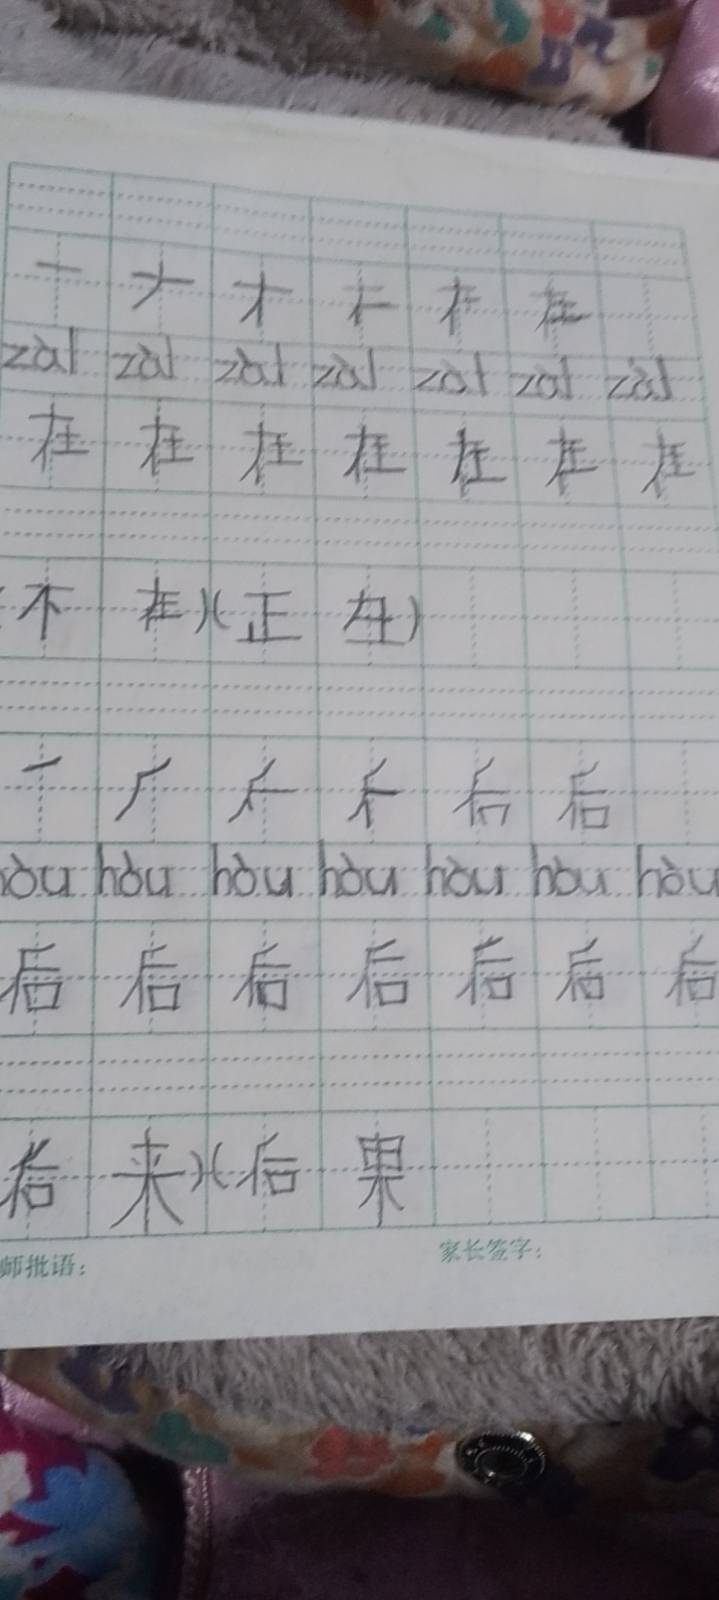 一 𠂇 才 在
zài zài zài zài zài zài zài
在 在 在 在 在 在 在
不 在)(正 在)
后
hòu hòu hòu hòu hòu hòu hòu
后 后 后 后 后 后 后
后 来)(后 果
师批语： 家长签字：